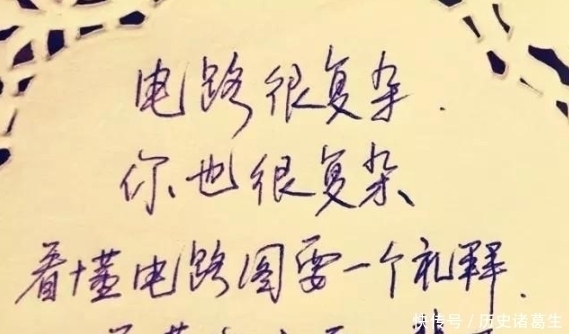 电路很复杂.
你也很复杂、
看懂电路图要一个礼拜.
快传号/历史诸葛生